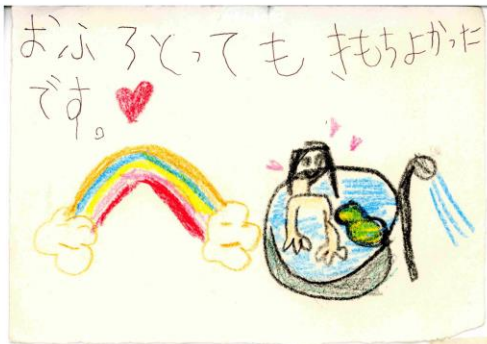 おふろとっても きもちよかった
です。